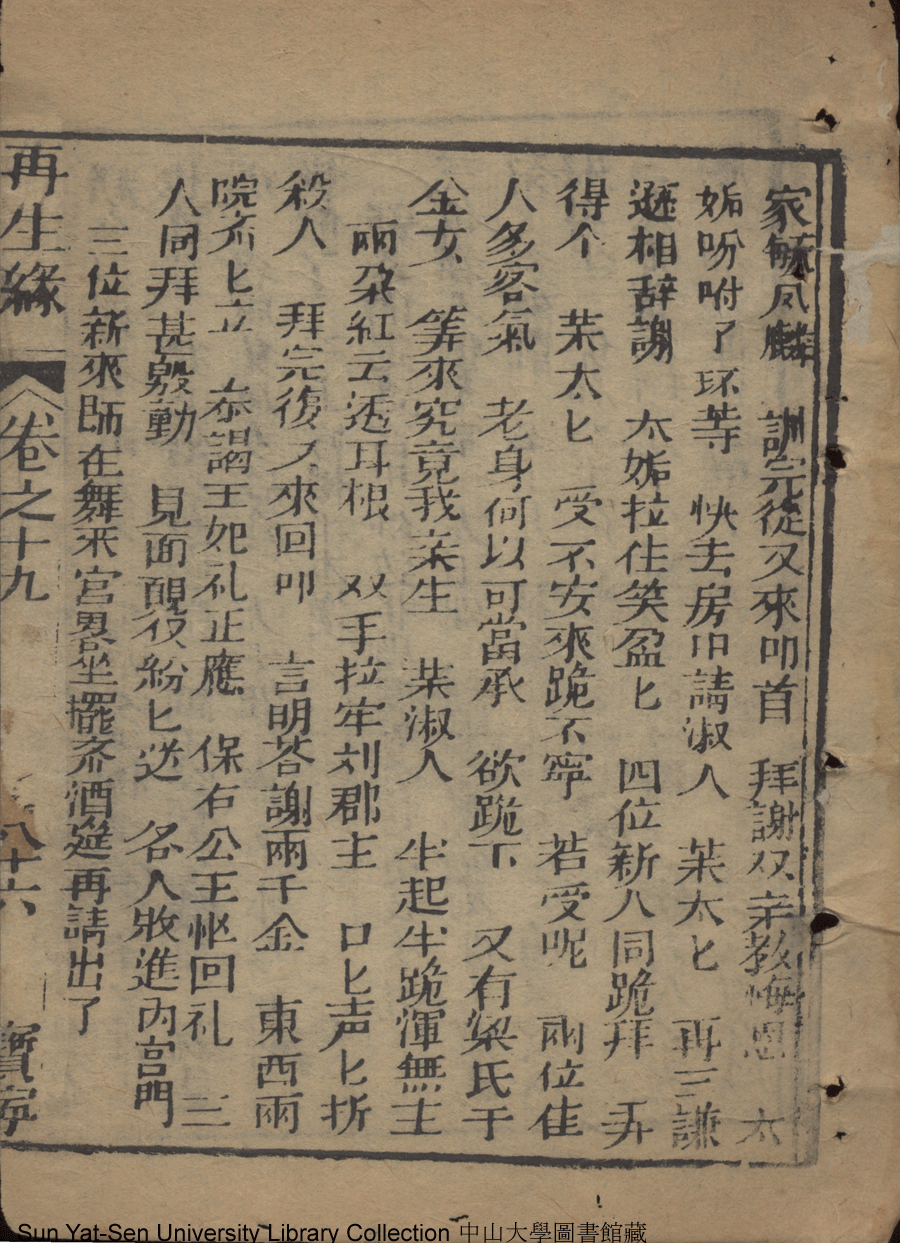 家毓凤麟　訓完従又來叩首　拜謝双亲教悔恩　太
妬吩咐了环等　快去房中請淑人　茉太匕　再三謙
遜相辞謝　太妬拉住笑盈匕　四位新人同跪拜　弄
得个　茉太匕　受不安來跪不寧　若受呢　兩位佳
人多客氣　老身何以可當承　欲跪下　又有梁氏干
金女　筭來究竟我亲生　茉淑人　半起半跪渾無主
兩朶紅云透耳根　双手拉牢刘郡主　口匕声匕折
殺人　拜完復又來回叩　言明荅謝兩千金　東西兩
院齐匕立　叅謁王妃礼正應　保右公王怄回礼　三
人同拜甚殷勤　見面儀紛匕送　名人收進內宫門
三位新來師在舞采宮畧坐擺齐酒筵再請出了
再生緣　卷之十九　八十六　寳寧
Sun Yat-Sen University Library Collection 中山大學圖書館藏